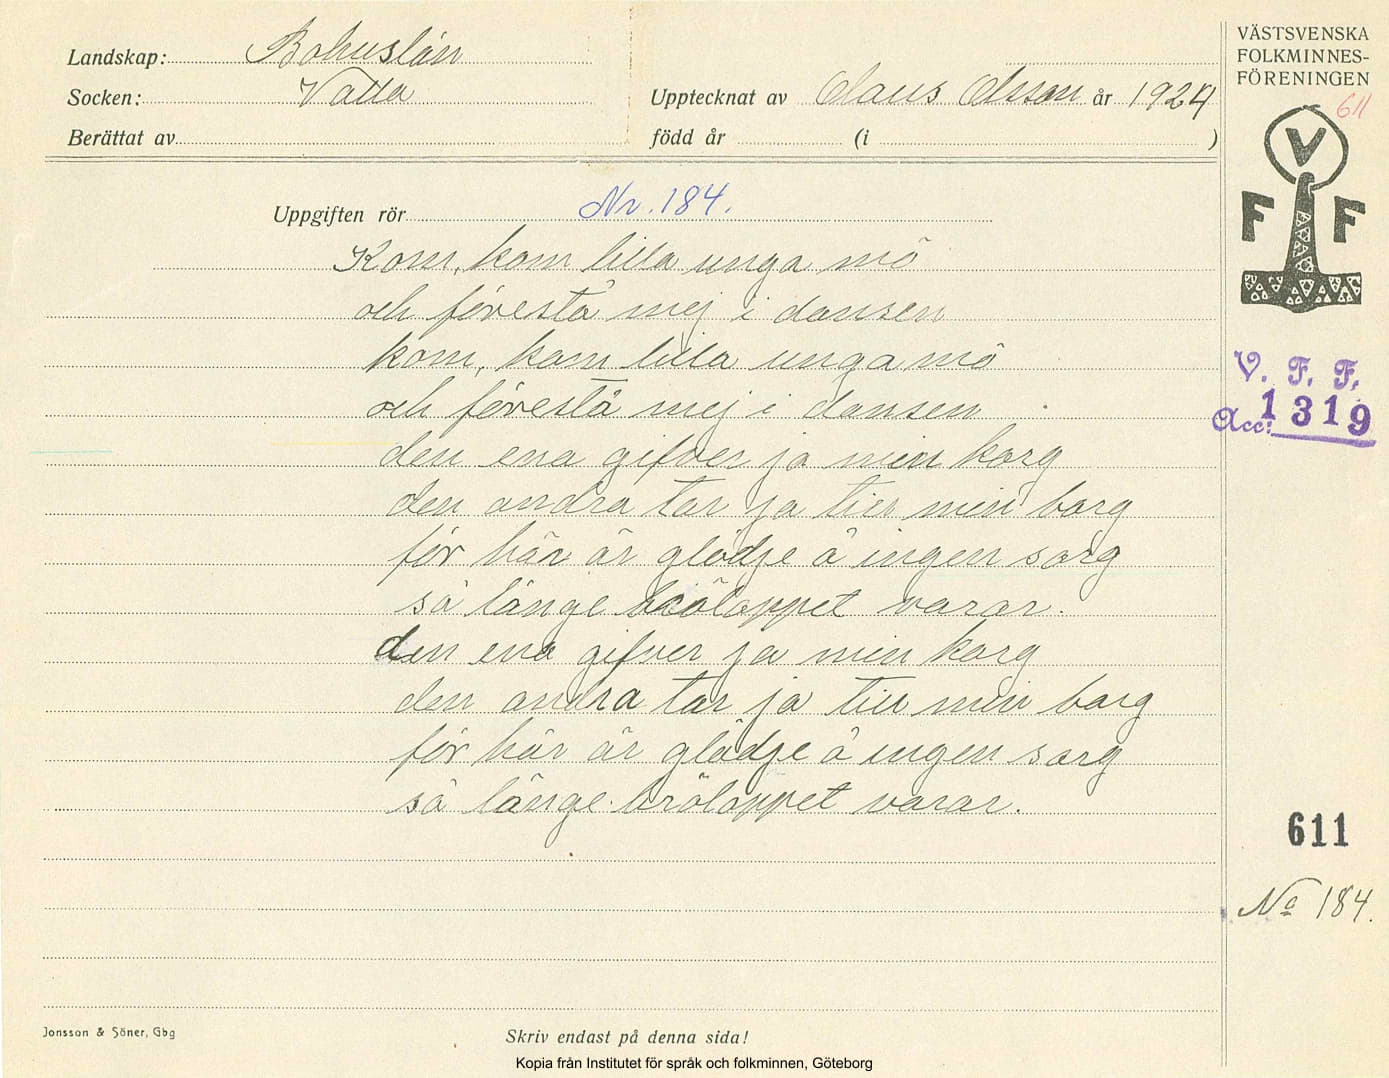 Landskap: Bohuslän
Socken: Valla
Upptecknat av Claus Olsson år 1924
Berättat av
född år (i )
VÄSTSVENSKA
FOLKMINNES-
FÖRENINGEN
611
V
F F
Uppgiften rör Nr. 184.
Kom, kom lilla unga mö
och förestå mej i dansen
kom, kom lilla unga mö
och förestå mej i dansen
den ena gifver ja min korg
den andra tar ja till min borg
för här är glädje å ingen sorg
så länge bröloppet varar.
den ena gifver ja min korg
den andra tar ja till min borg
för här är glädje å ingen sorg
så länge bröloppet varar.
V. F. F.
Acc: 1319
611
No 184.
Jonsson & Söner, Gbg
Skriv endast på denna sida!
Kopia från Institutet för språk och folkminnen, Göteborg